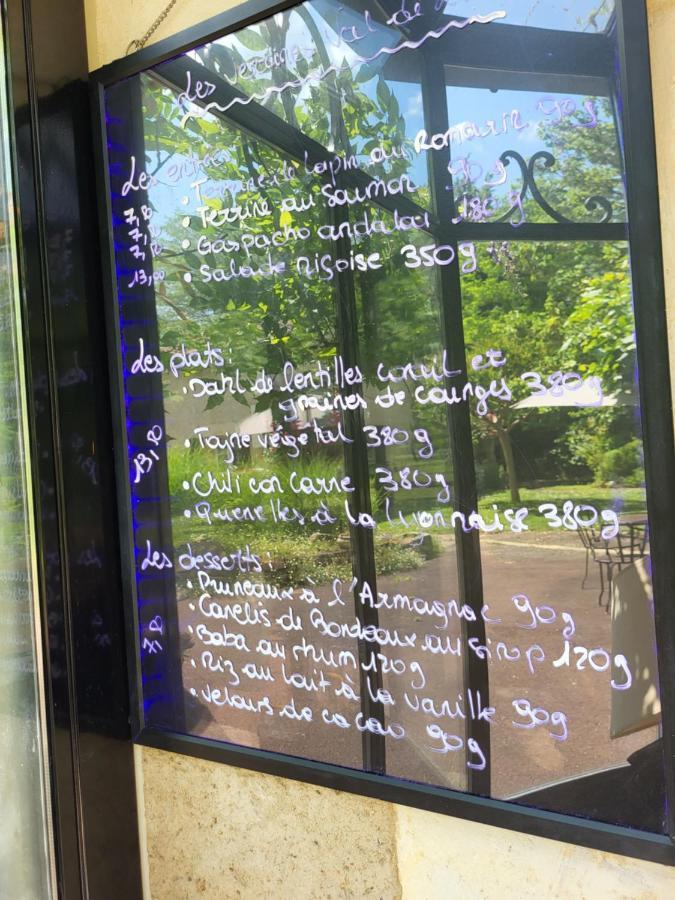 Les verrines Val de
Les entrées
7,50 • Terrine de lapin au Romarin 90g
7,50 • Terrine au Saumon 90g
7,50 • Gaspacho andalou 180g
13,00 • Salade niçoise 350g
Les plats:
• Dahl de lentilles corail et
graines de courges 380g
• Tajne végétal 380g
13,50
• Chili con carne 380g
• Quenelles à la lyonnaise 380g
Les desserts:
• Pruneaux à l'Armagnac 90g
• Canelés de Bordeaux au sirop 120g
7,50 • Baba au rhum 120g
• Riz au lait à la vanille 90g
• Velours de cacao 90g